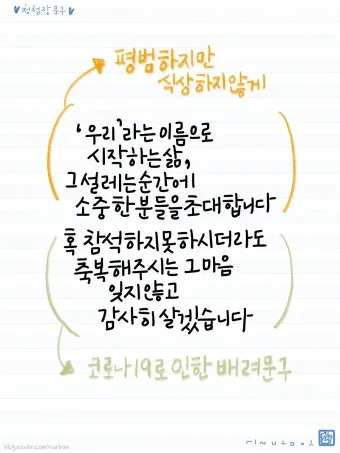 ♥청첩장 문구♥
평범하지만
식상하지않게
'우리'라는 이름으로
시작하는 삶,
그 설레는 순간에
소중한 분들을 초대합니다
혹 참석하지 못하시더라도
축복해주시는 그 마음
잊지 않고
감사히 살겠습니다
코로나19로 인한 배려문구